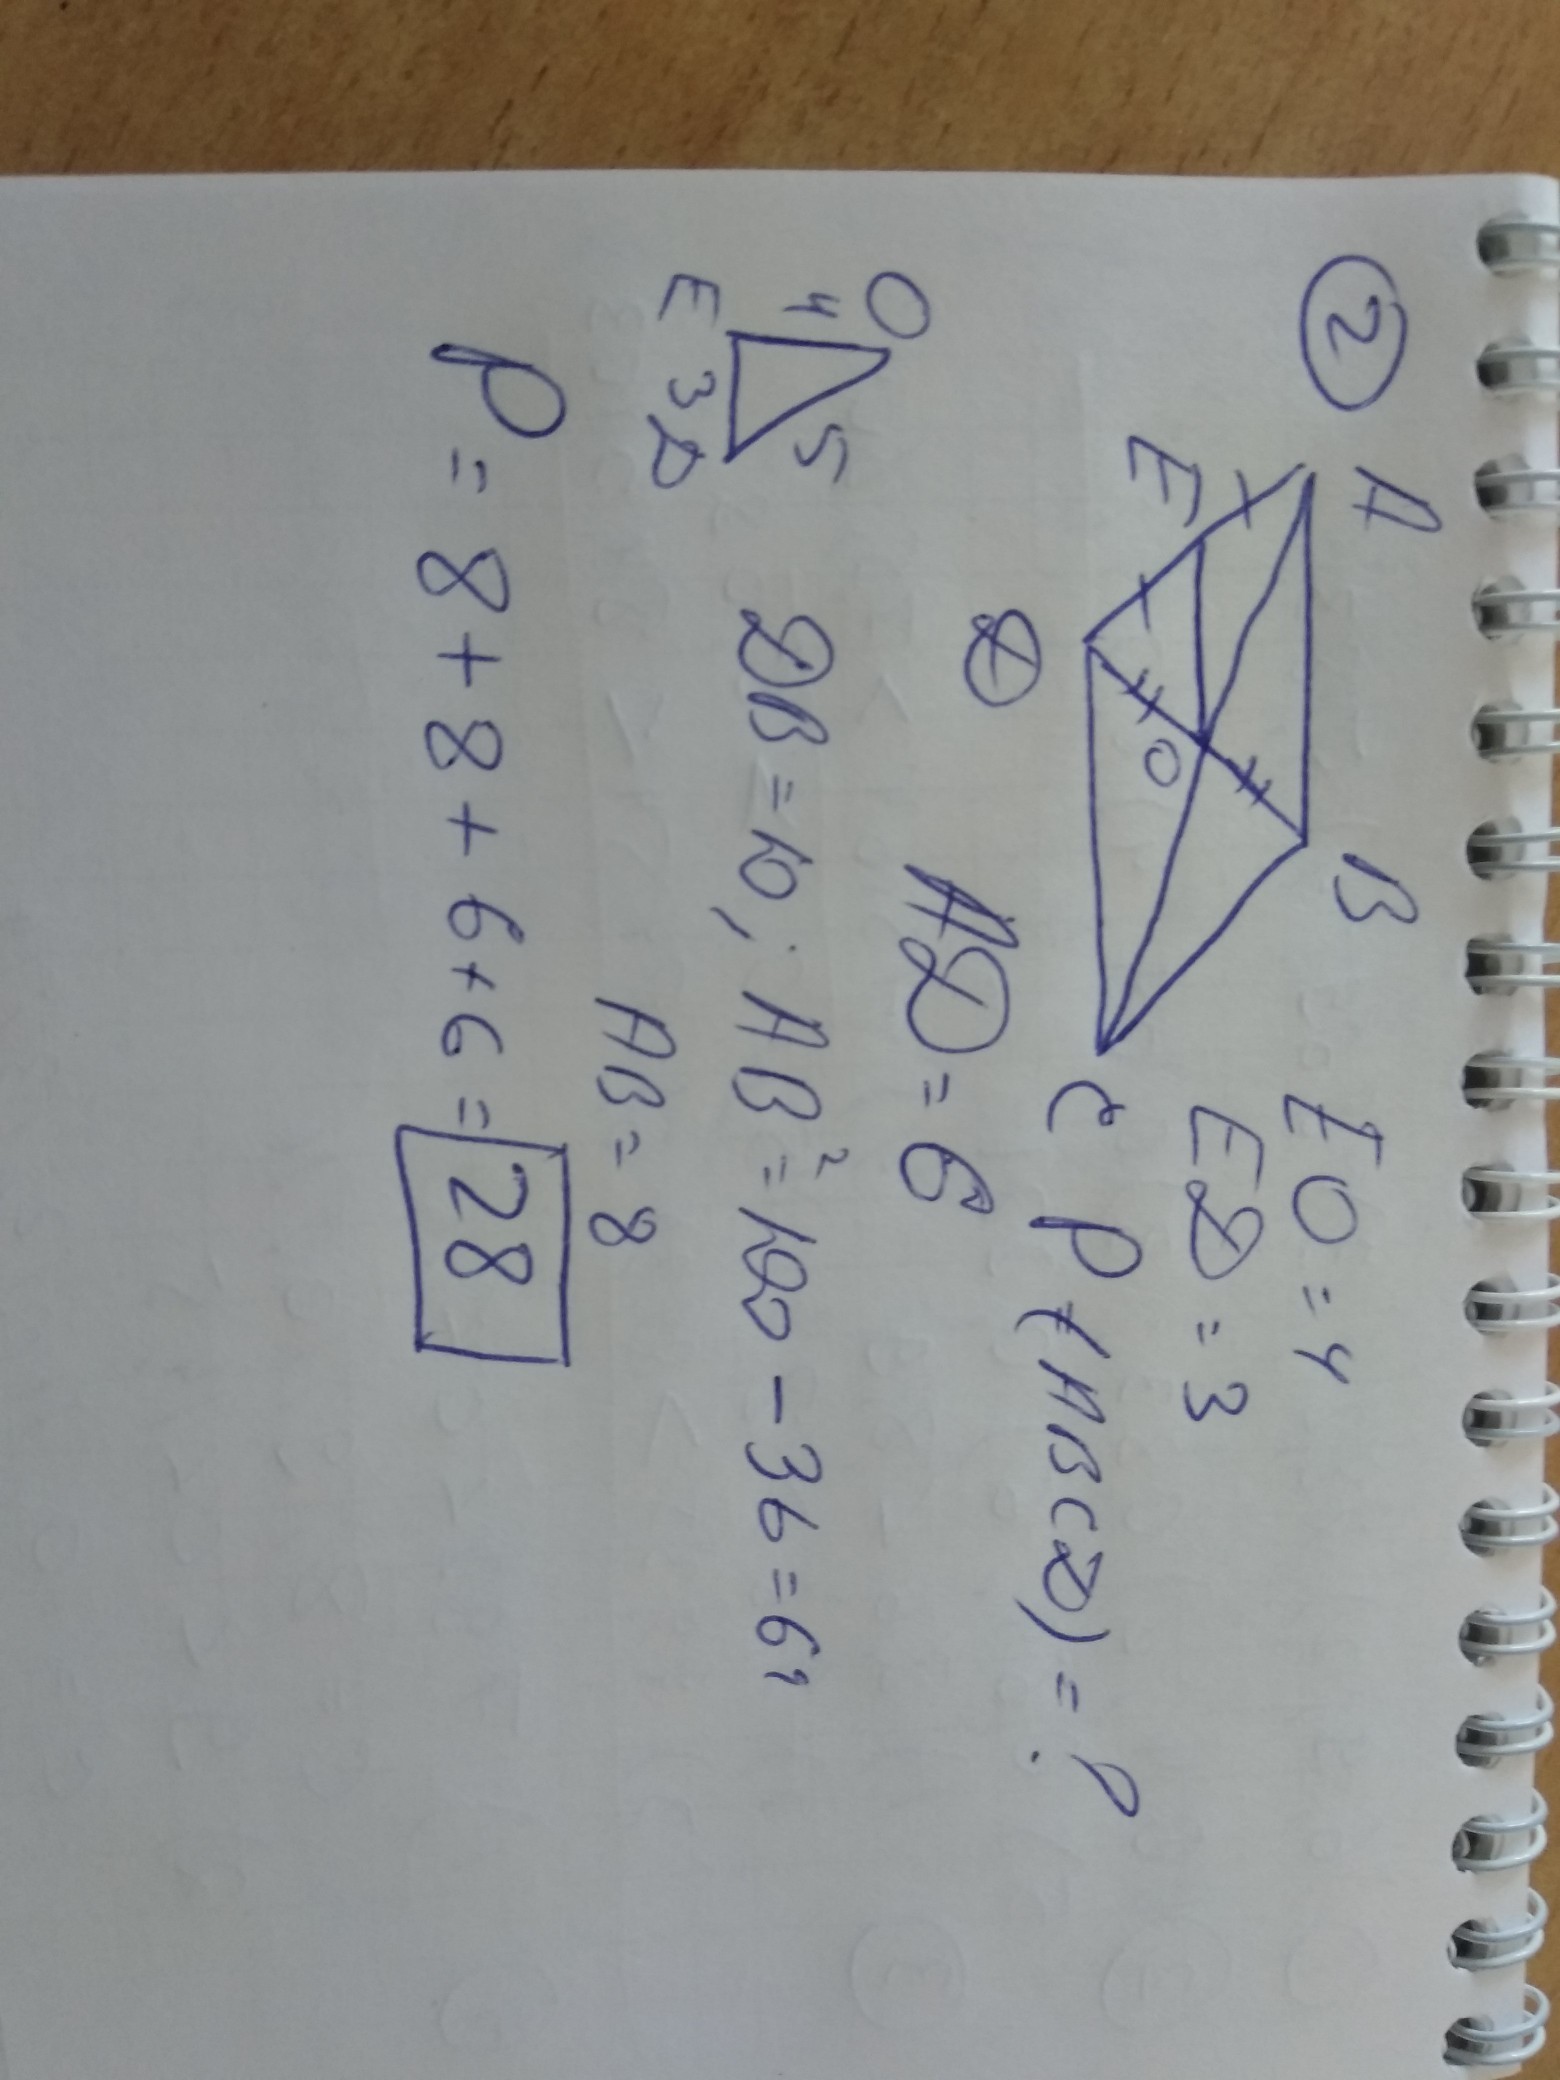 2
A B
E O
D C
EO = 4
ED = 3
P(ABCD) = ?
AD = 6
O
4 5
E 3 D
DB = 10; AB² = 100 - 36 = 64
AB = 8
P = 8 + 8 + 6 + 6 = 28